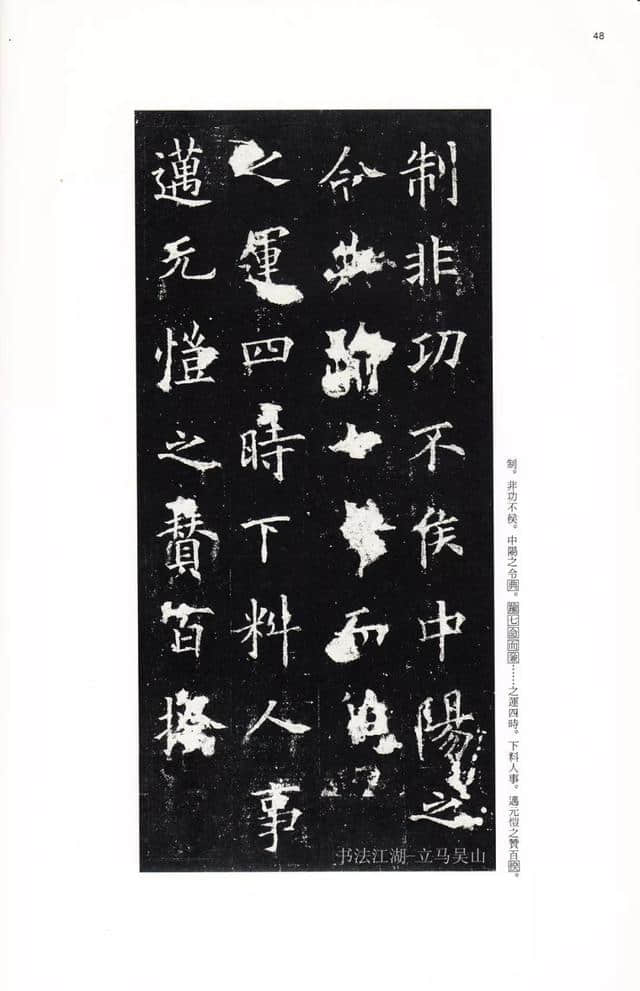 48
制非功不侯中陽之
令典踰七而
之運四時下料人事
邁元愷之賛百揆
制。非功不侯。中陽之令典。踰七命而……之運四時。下料人事。邁元愷之賛百揆。
书法江湖-立马吴山